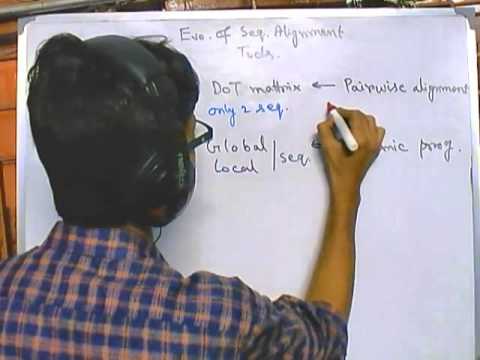 Evo. of Seq. Alignment
Tools.
DOT mattrix ← Pairwise alignment
only 2 seq.
Global
Local / seq. prog.